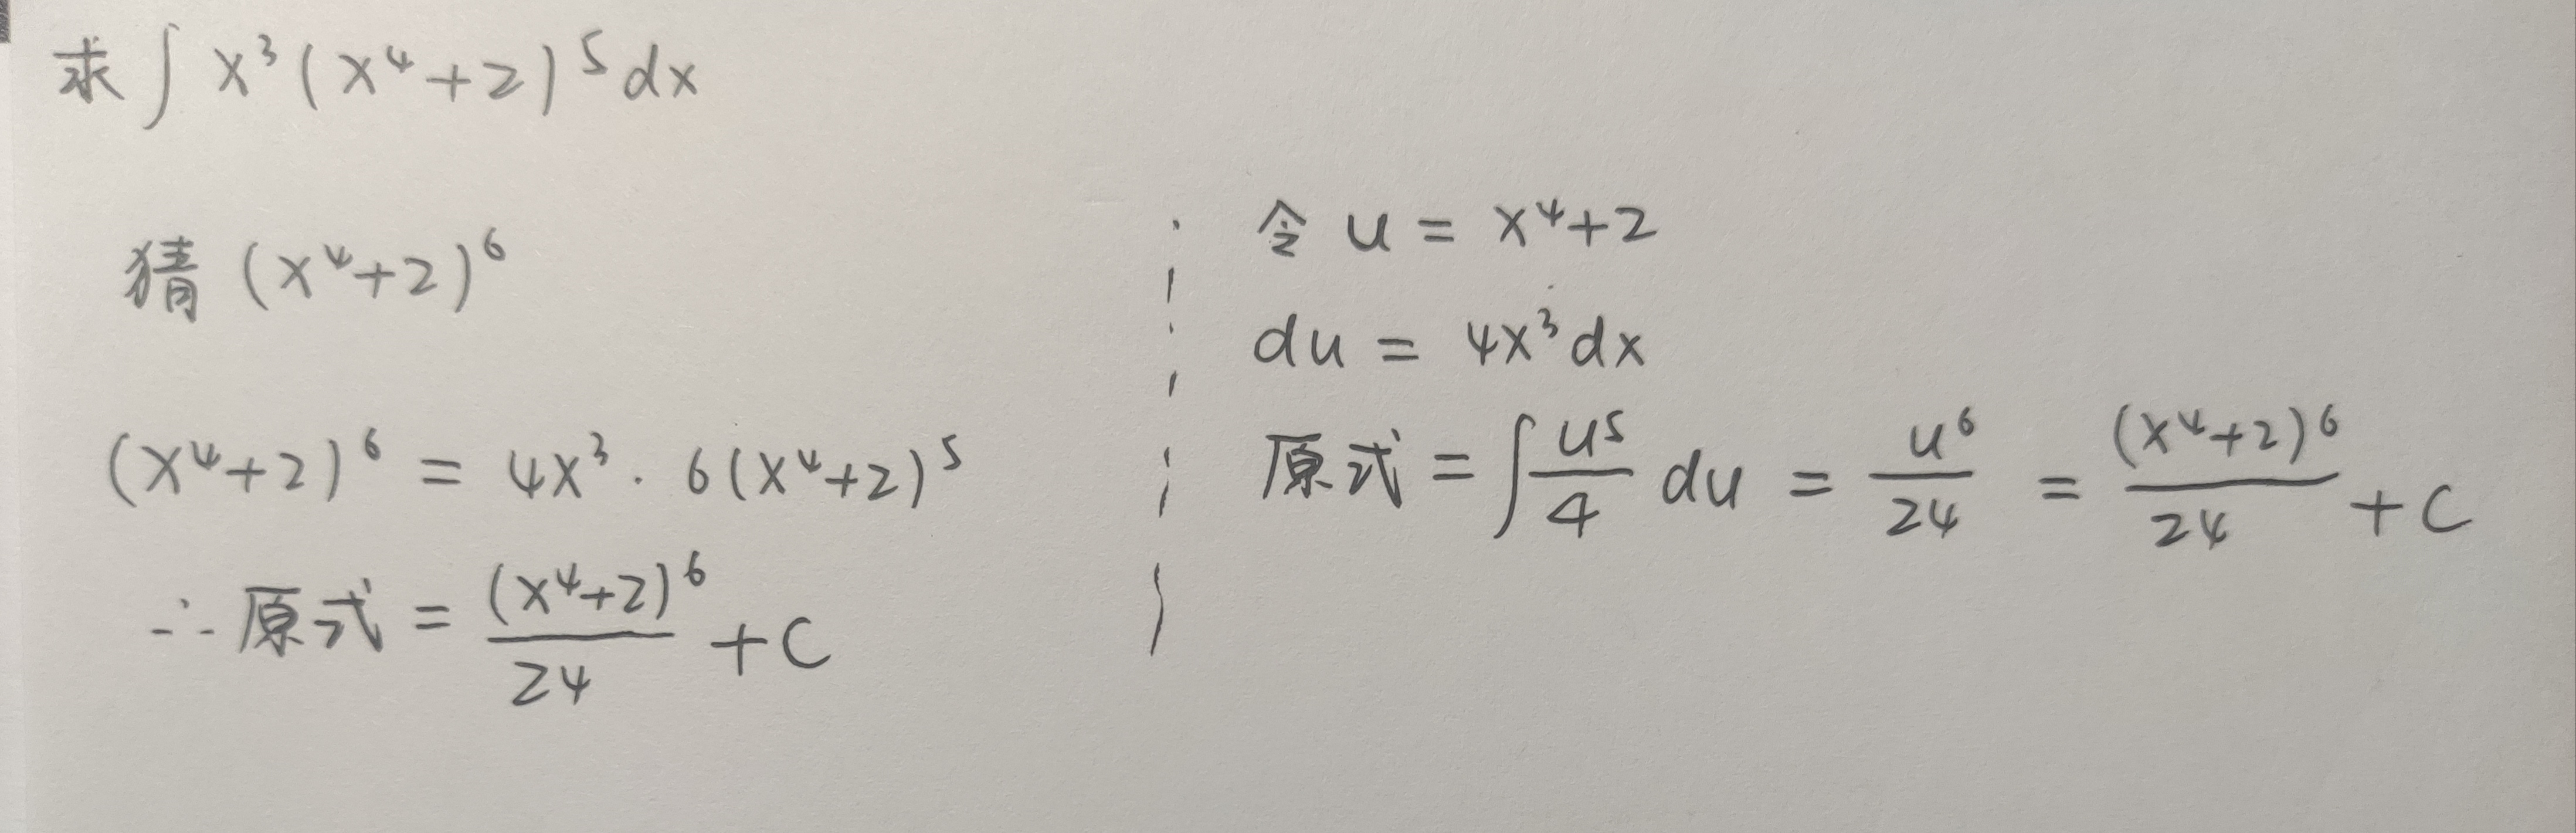 求∫x³(x⁴+2)⁵dx
猜 (x⁴+2)⁶
(x⁴+2)⁶ = 4x³·6(x⁴+2)⁵
∴原式 = (x⁴+2)⁶/24 + C
令 u = x⁴+2
du = 4x³dx
原式 = ∫u⁵/4 du = u⁶/24 = (x⁴+2)⁶/24 + C